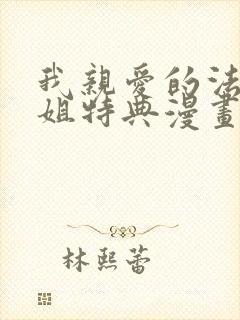 我親愛的法
姐特典漫畫
林熙蕾